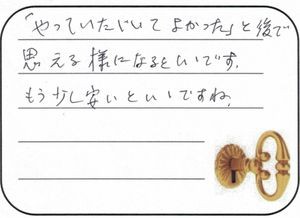 「やっていただいて よかった」と後で
思える様になるといいです。
もう少し安いといいですね。